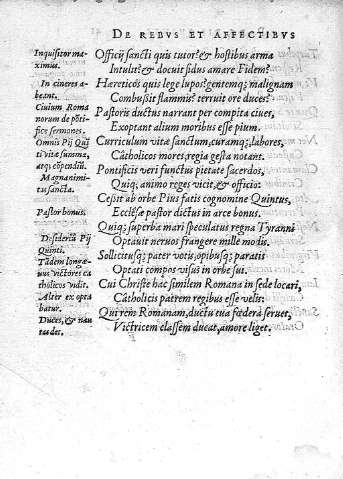 DE REBVS ET AFFECTIBVS
Inquisitor maximus.
Officij sancti quis tutor? & hostibus arma
Intulit? & docuit fidus amare Fidem?
In cineres abeant.
Hæreticos quis lege lupos? gentemq; malignam
Combussit flammis? terruit ore duces?
Ciuium Romanorum de pótifice sermones.
Pastoris ductus narrant per compita ciues,
Exoptant alium moribus esse pium.
Omnis Pij Quíti vita summa, atq; cõpendiũ.
Curriculum vitæ sanctum, curamq;, labores,
Catholicos mores, regia gesta notant.
Magnanimitas sancta.
Pontificis veri functus pietate sacerdos,
Quiq; animo reges vicit, & officio:
Cessit ab orbe Pius fatis cognomine Quintus,
Pastor bonus.
Ecclesæ pastor dictus in arce bonus.
Quiq; superba mari speculatus regna Tyranni
Desideriũ Pij Quinti.
Optauit neruos frangere mille modis.
Tãdem longæuus victores catholicos vidit.
Sollicitusq; pater votis, opibusq; paratis
Optati compos visus in orbe sui.
Alter ex optabatur.
Cui Christe hac similem Romana in sede locari,
Catholicis patrem regibus esse velis:
Duces, & nautæ des.
Qui rem Romanam, ductu tua fœdera seruet,
Victricem classem ducat, amore liget.